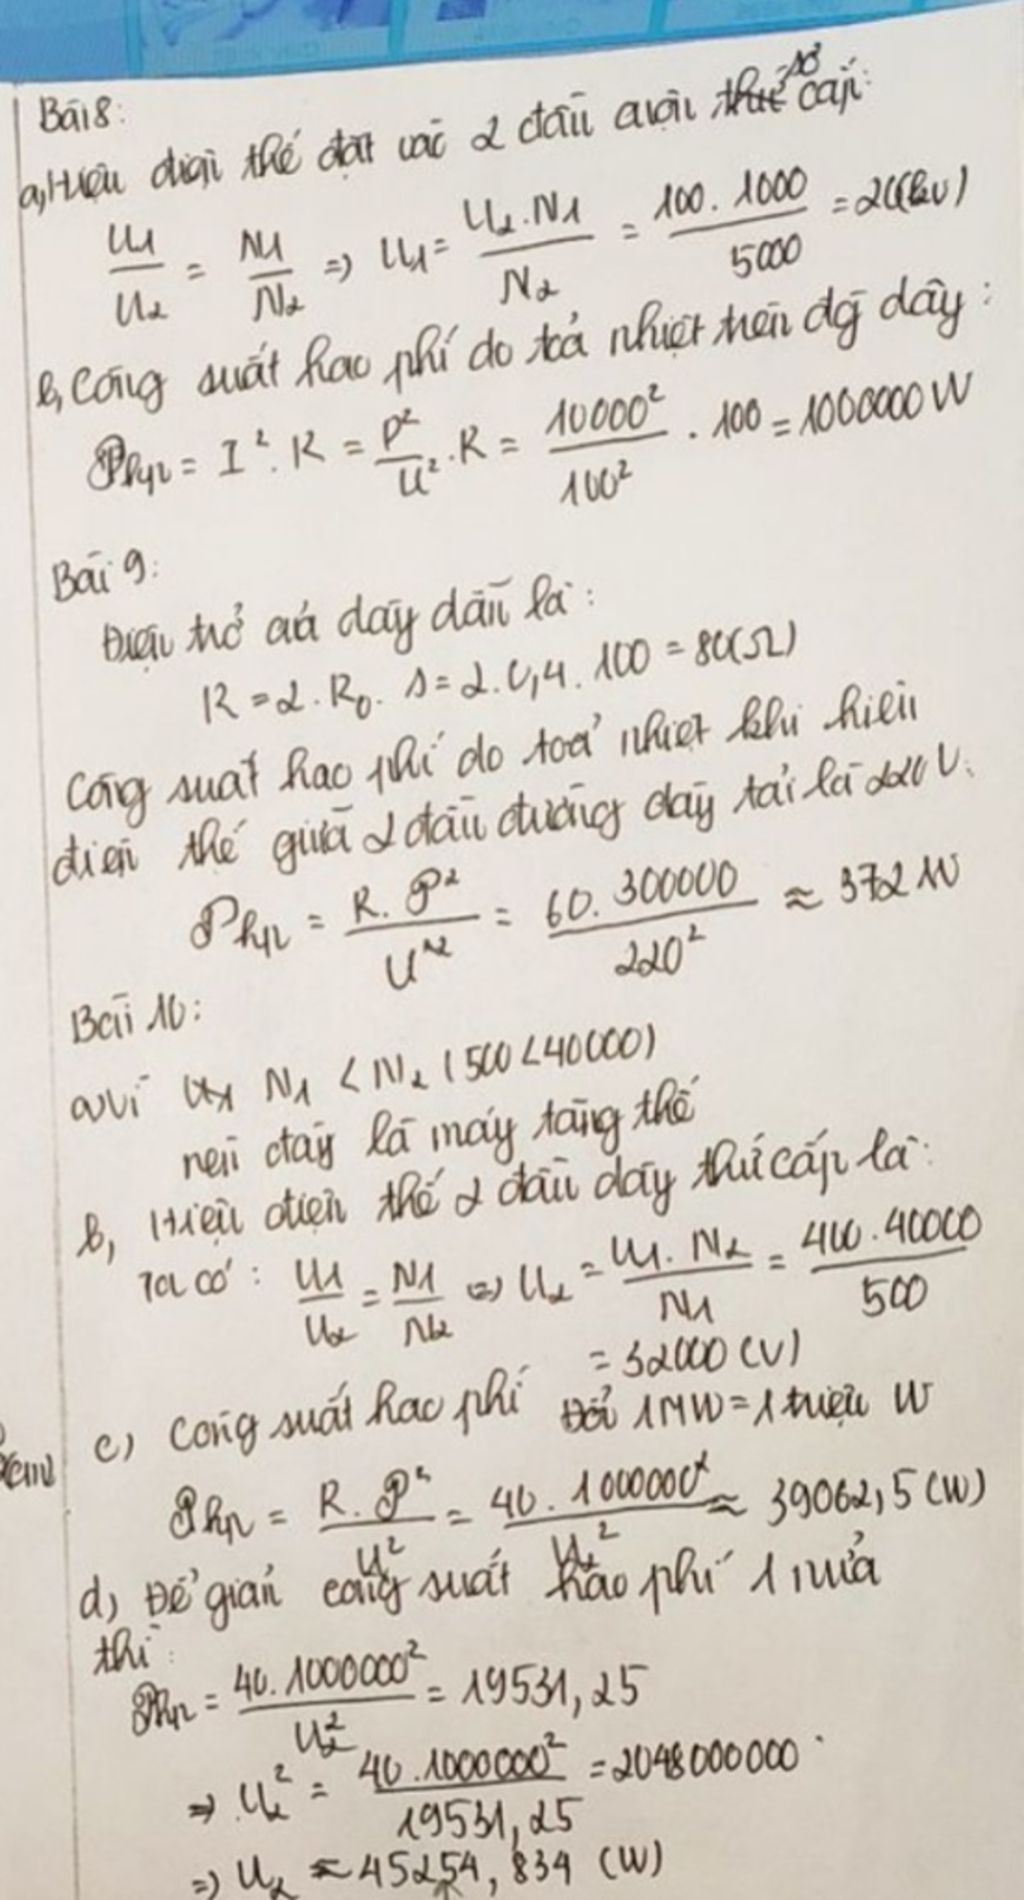 Bài 8:
a, Hiệu điện thế đặt vào 2 đầu cuộn sơ cấp:
U1/U2 = N1/N2 => U1 = U2.N1/N2 = 100.1000/5000 = 20(kV)
b, Công suất hao phí do toả nhiệt trên đg dây:
Php = I².R = P²/U².R = 10000²/100².100 = 1000000W
Bài 9:
Điện trở của dây dẫn là:
R = 2.R0.s = 2.0,4.100 = 80(Ω)
Công suất hao phí do toả nhiệt khi hiệu
điện thế giữa 2 đầu đường dây tải là 220V.
Php = R.P²/U² = 60.300000/220² ≈ 372 W
Bài 10:
a, Vì N1 < N2 (500<40000)
nên đây là máy tăng thế
b, Hiệu điện thế 2 đầu dây thứ cấp là:
Ta có: U1/U2 = N1/N2 => U2 = U1.N2/N1 = 400.40000/500
= 32000 (V)
c) Công suất hao phí Đổi 1MW = 1 triệu W
Php = R.P²/U² = 40.1000000²/U2² ≈ 39062,5 (W)
d) Để giảm công suất hao phí 1 nửa
thì:
Php = 40.1000000²/U2² = 19531,25
=> U2² = 40.1000000²/19531,25 = 2048000000
=> U2 ≈ 45254,834 (W)